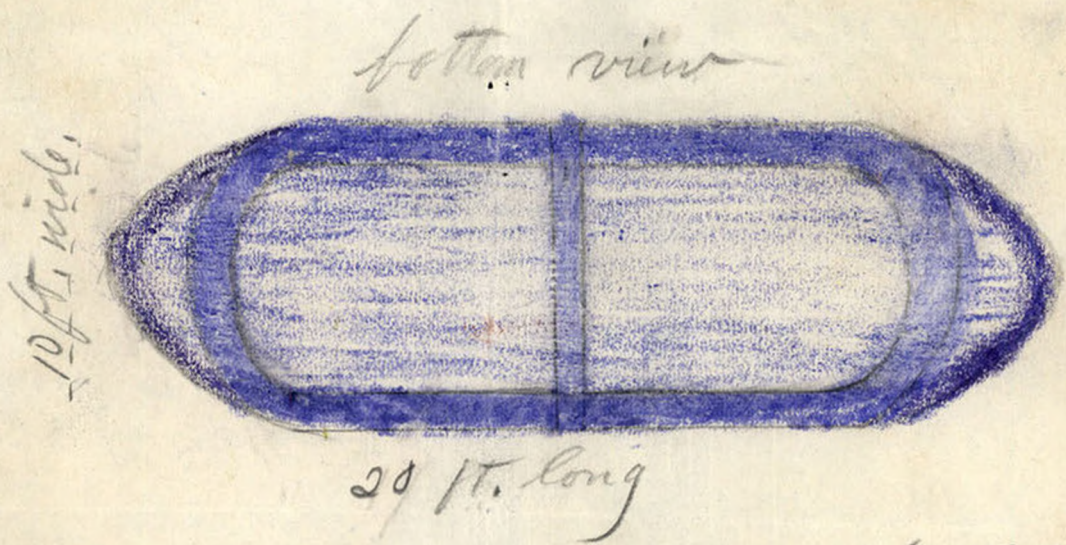 bottom view
10 ft. wide.
20 ft. long